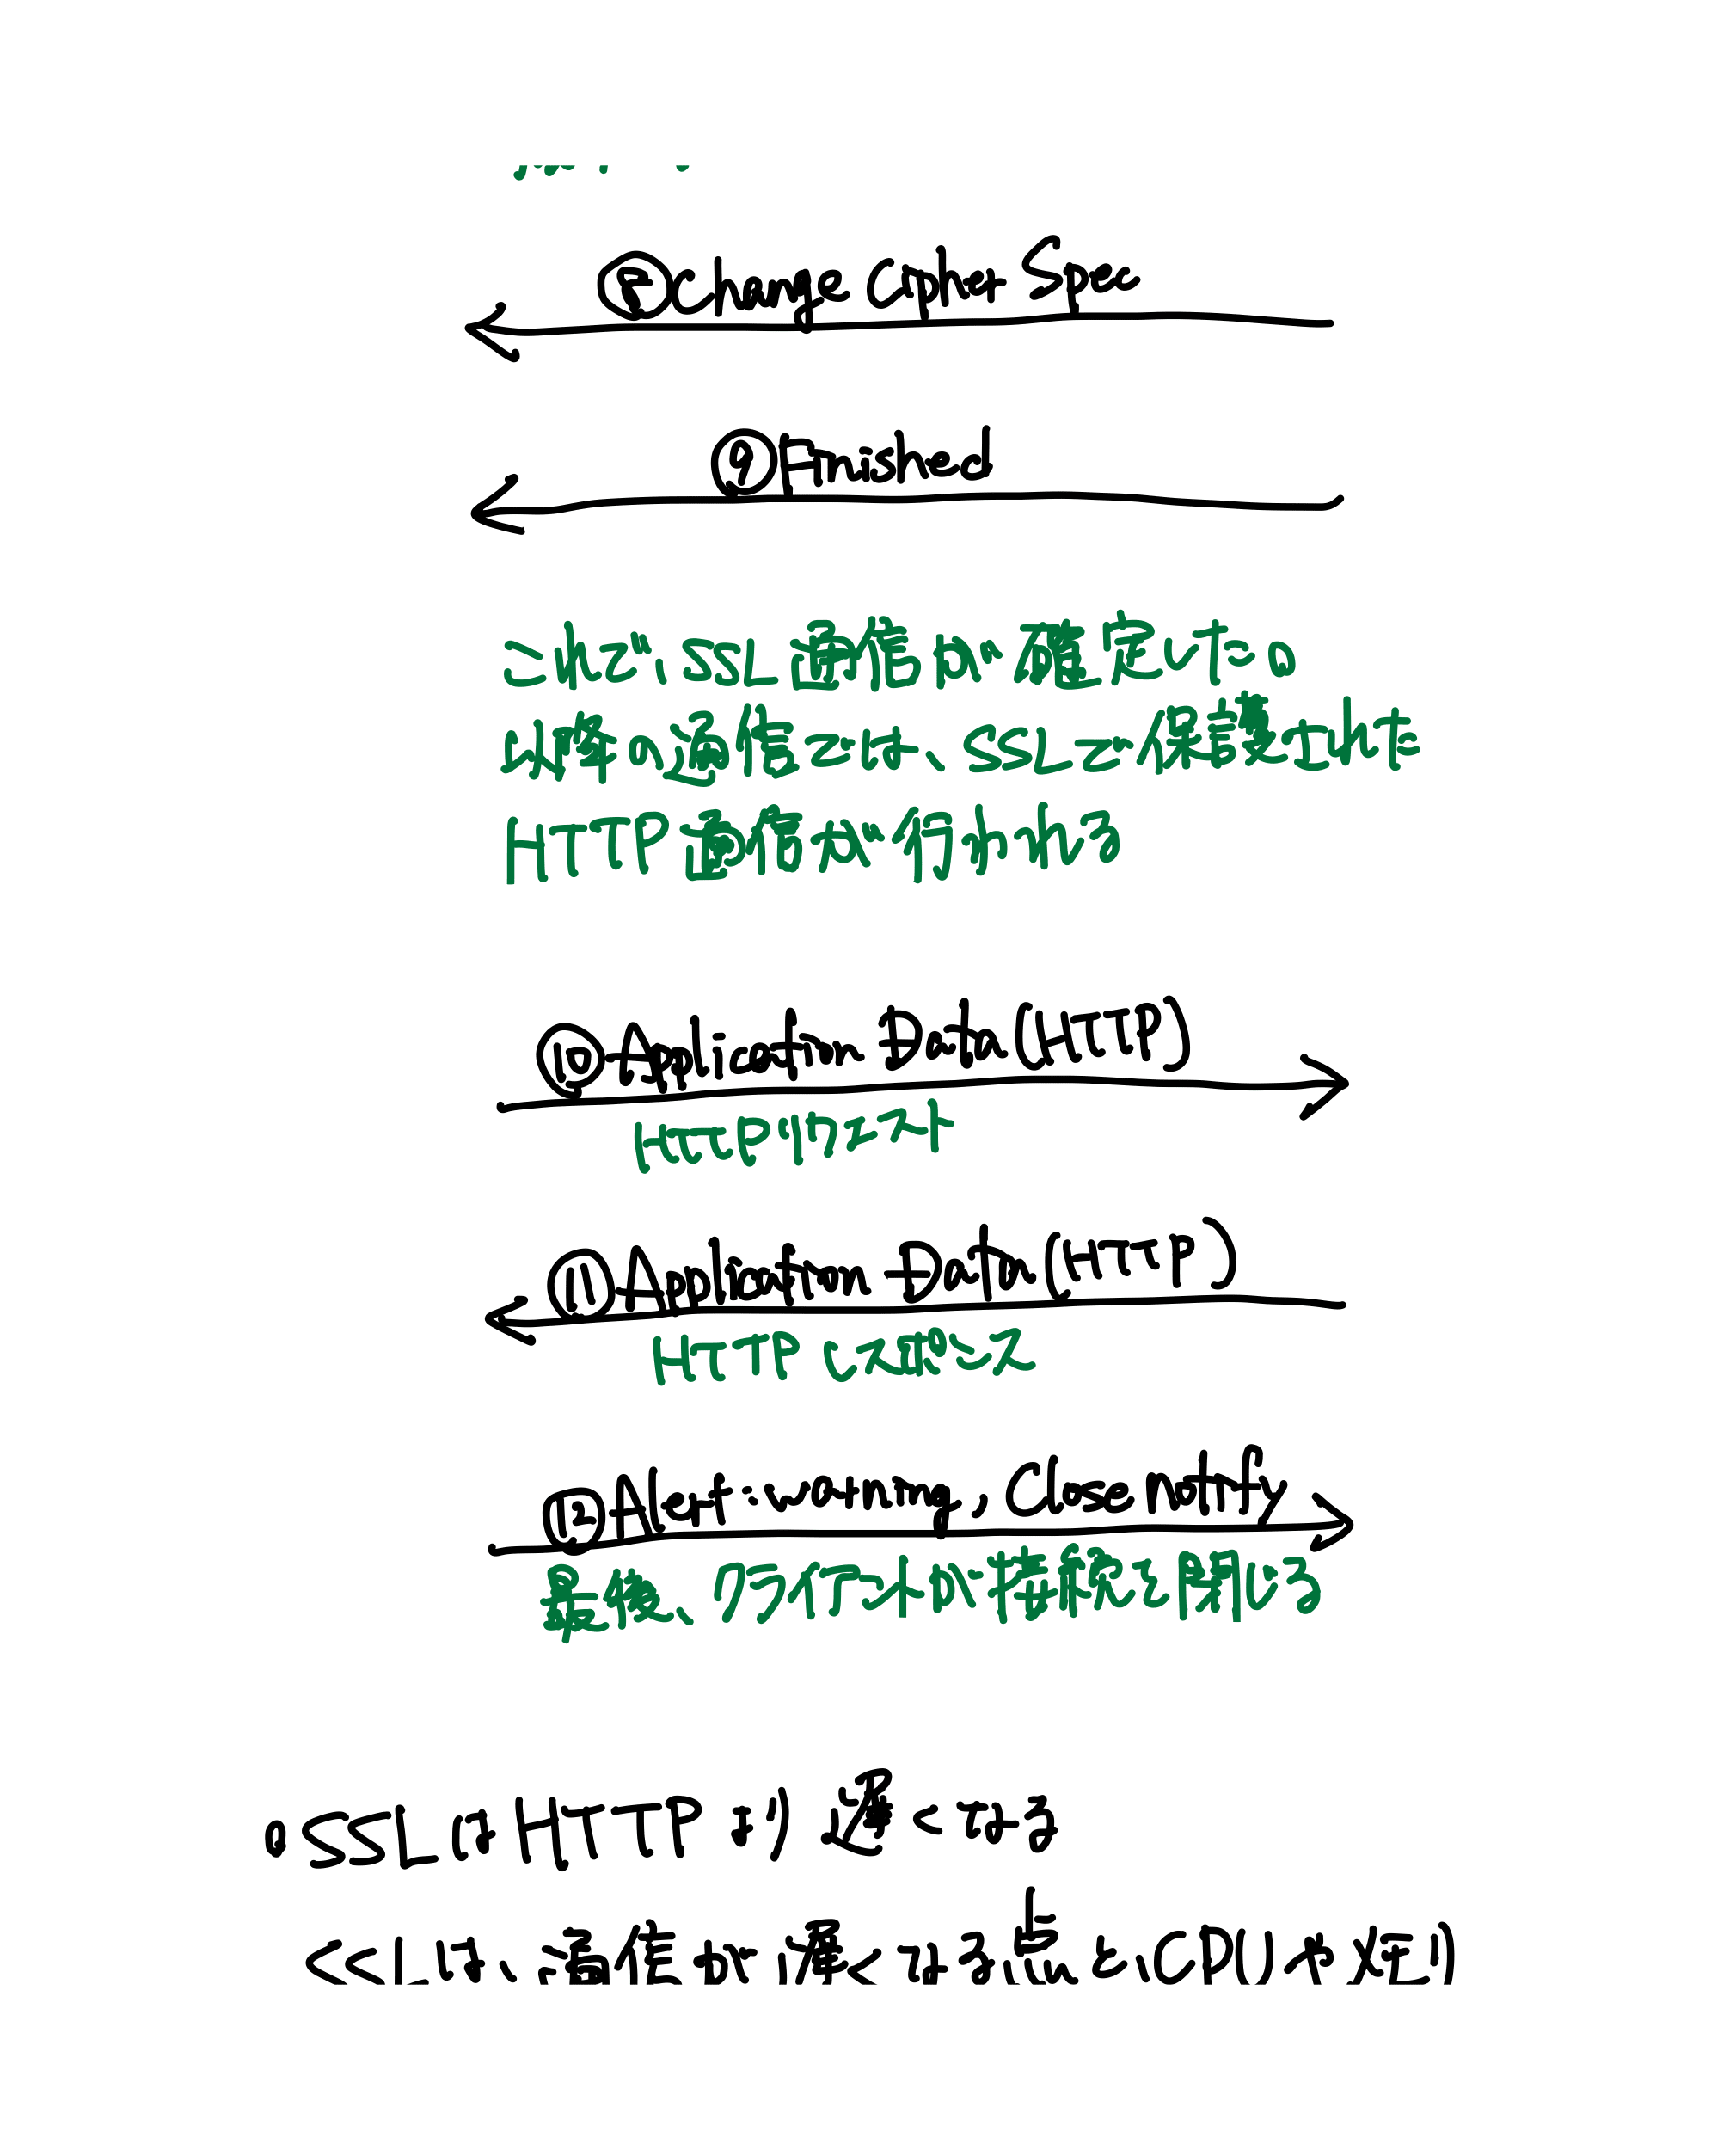 ⑧Change Cipher Spec
⑨Finished
これで、SSL通信が確定した。
以降の通信では、SSLで保護された
HTTP通信が行われる
⑩Application Data(HTTP)
HTTPリクエスト
⑪Application Data(HTTP)
HTTPレスポンス
⑫Alert:warning, Close notify
最後、クライアントが接続を閉じる
。SSLはHTTPより遅くなる
<<1は、通信が遅くなる点とCPUやメモリ